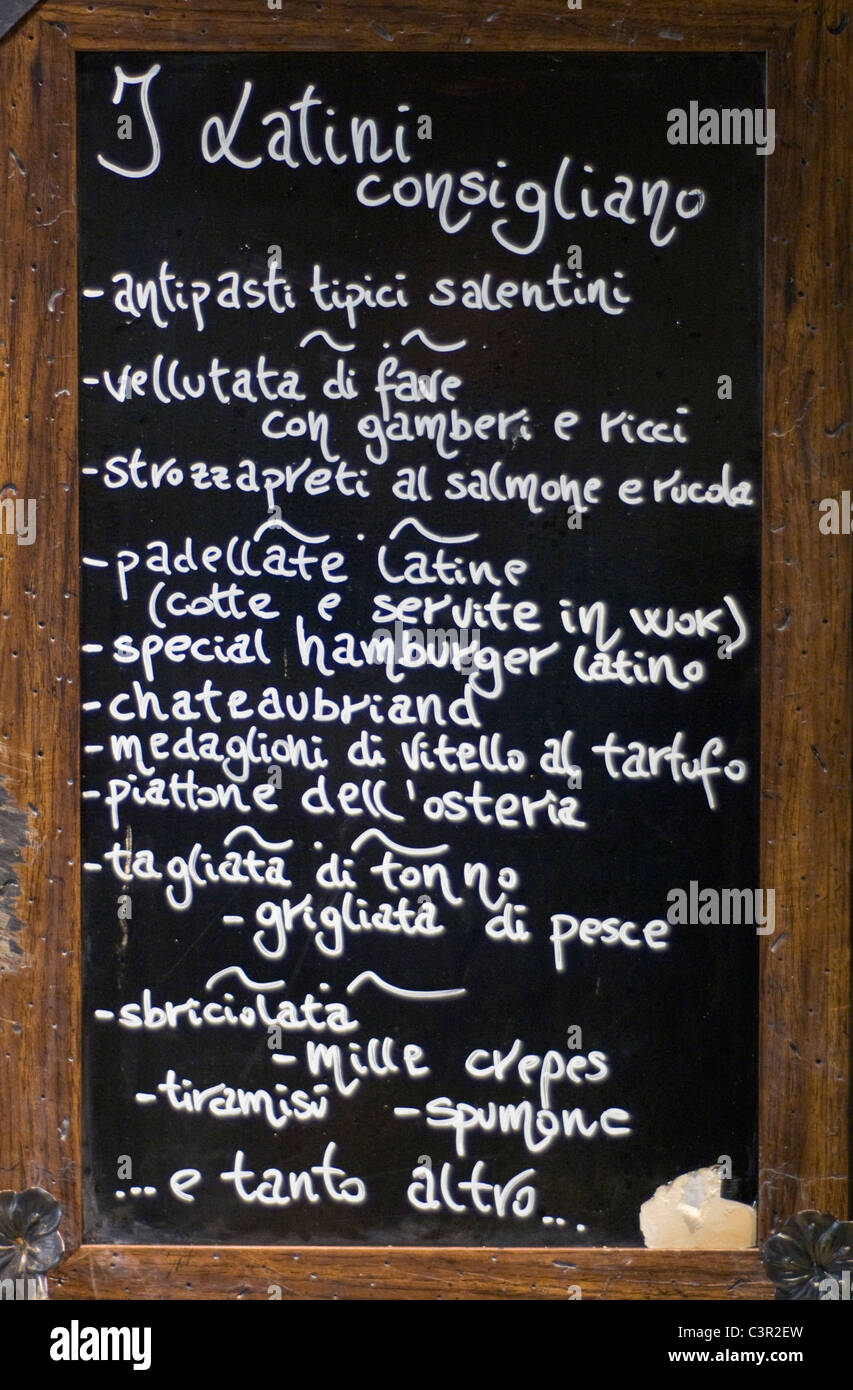 I Latini
consigliano
- antipasti tipici salentini
- vellutata di fave
con gamberi e ricci
- strozzapreti al salmone e rucola
- padellate latine
(cotte e servite in wok)
- special hamburger latino
- chateaubriand
- medaglioni di vitello al tartufo
- piattone dell'osteria
- tagliata di tonno
- grigliata di pesce
- sbriciolata
- mille crepes
- tiramisù - spumone
... e tanto altro...
alamy
Image ID: C3R2EW
www.alamy.com